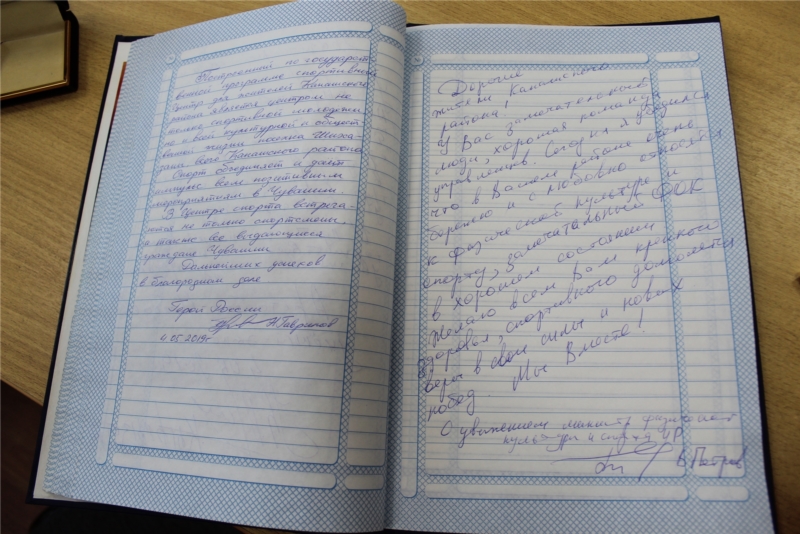 Построенный по государст-
венной программе спортивный
Центр для жителей Канашского
района является центром не
только спортивной молодежи
но и всей культурной и общест-
венной жизни поселка Шиха-
заны всего Канашского района
Спорт объединяет и дает
импульс всем позитивным
мероприятиям в Чувашии.
В Центре спорта встреча-
ются не только спортсмены,
а также все выдающиеся
граждане Чувашии
Дальнейших успехов
в благородном деле
Герой России
Н Гаврилов
4.05.2019г
Дорогие
жители Канашского
района,
У Вас замечательные
люди, хорошая команда
управленцев. Сегодня я убедился
что в Вашем районе очень
бережно и с любовью относятся
к физической культуре и
спорту, замечательный ФОК
в хорошем состоянии
Желаю всем Вам крепкого
здоровья, спортивного долголетия
веры в свои силы и новых
побед. Мы Вместе!
С уважением министр физической
культуры и спорта ЧР
В Петров